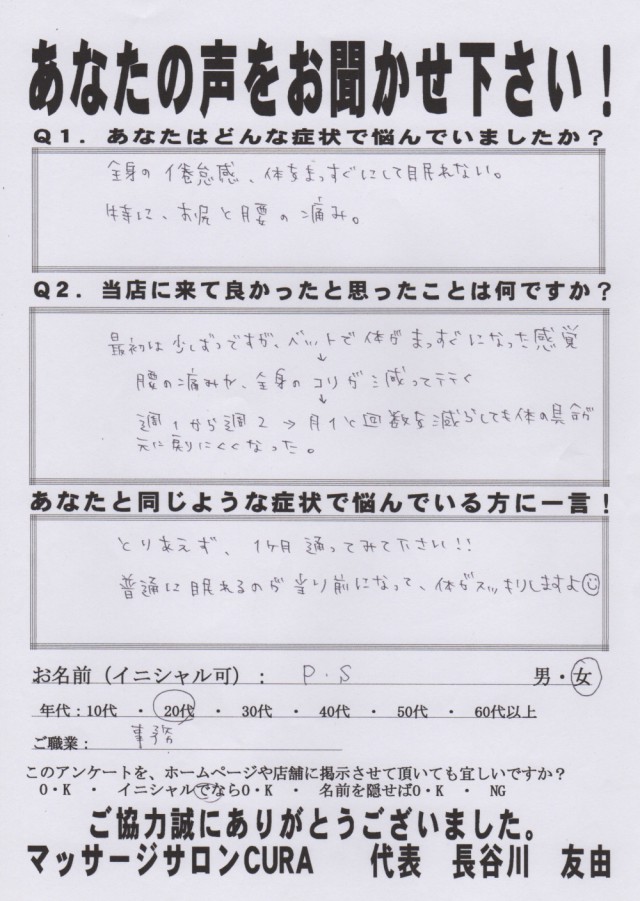 あなたの声をお聞かせ下さい！
Q1．あなたはどんな症状で悩んでいましたか？
全身の倦怠感、体をまっすぐにして眠れない。
特に、お尻と腰の痛み。
Q2．当店に来て良かったと思ったことは何ですか？
最初は少しずつですが、ベットで体がまっすぐになった感覚
↓
腰の痛みや、全身のコリが減ってテテく
↓
週1から週2→月1と回数を減らしても体の具合が
元に戻りにくくなった。
あなたと同じような症状で悩んでいる方に一言！
とりあえず、1ヶ月通ってみて下さい!!
普通に眠れるのが当り前になって、体がスッキリしますよ☺
お名前（イニシャル可）： P.S 男・女
年代：10代 ・ 20代 ・ 30代 ・ 40代 ・ 50代 ・ 60代以上
ご職業： 事務
このアンケートを、ホームページや店舗に掲示させて頂いても宜しいですか？
O・K ・ イニシャルでならO・K ・ 名前を隠せばO・K ・ NG
ご協力誠にありがとうございました。
マッサージサロンCURA 代表 長谷川 友由